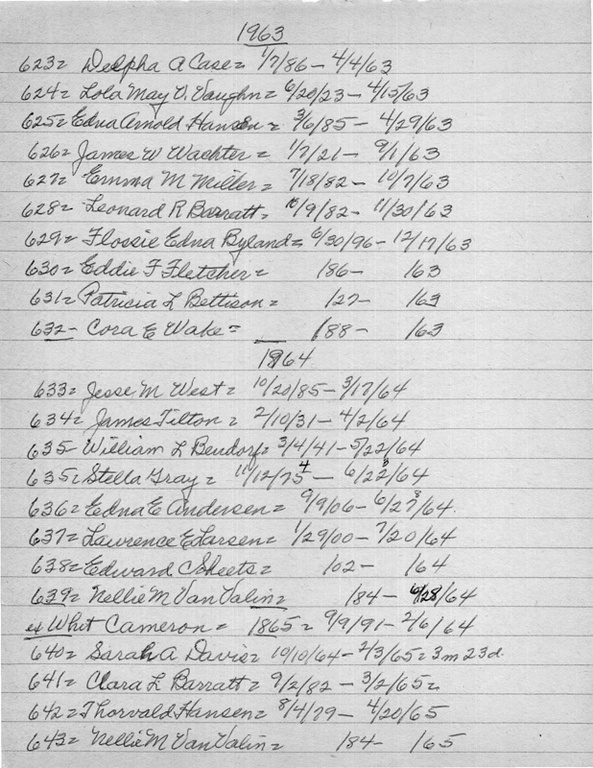 1963
623= Delpha A Case = 1/7/86 - 4/4/63
624= Lola May V. Vaughn = 6/20/23 - 4/15/63
625= Edna Arnold Hansen = 3/6/85 - 4/29/63
626= James W Wachter = 1/7/21 - 9/1/63
627= Emma M Miller = 7/18/82 - 10/7/63
628= Leonard R Barratt = 10/9/82 - 11/30/63
629= Flossie Edna Byland = 6/30/96 - 12/17/63
630= Eddie F Fletcher = /86 - /63
631= Patricia L Bettison = /27 - /63
632- Cora E Wake = /88 - /63
1964
633= Jesse M West = 10/20/85 - 3/17/64
634= James Tilton = 2/10/31 - 4/2/64
635- William L Bendorf = 3/4/41 - 5/22/64
635= Stella Gray = 11/12/75 - 6/22/64
636= Edna E Andersen = 9/9/06 - 6/27/64.
637= Lawrence E Larsen = 1/29/00 - 7/20/64
638= Edward C Sheets = /02 - /64
639= Nellie M Van Valin = /84 - 6/28/64
Whit Cameron = 1865 = 9/9/91 - 2/6/64
640= Sarah A Davis = 10/10/64 - 2/3/65 = 3m 23d.
641= Clara L Barratt = 9/2/82 - 3/2/65 =
642= Thorvald Hansen = 8/4/79 - 4/20/65
643= Nellie M Van Valin = /84 - /65